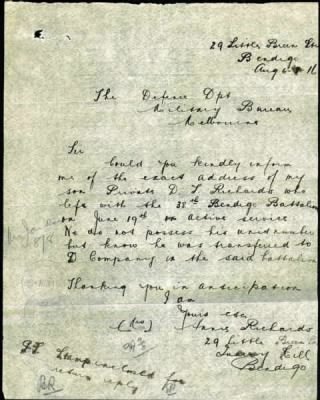 29 Little Breen St
Bendigo
Aug 16
The Defence Dpt
Military Bureau
Melbourne
Sir
Could you kindly inform
me of the exact address of my
son Private D T Richards who
left with the 38th Bendigo Battalion
on June 19th on active service.
We do not possess his unit number
but know he was transferred to
D Company in the said battalion
Thanking you in anticipation
I am
Yours etc
(Mrs) Richards
29 Little Breen St
Hill
Bendigo
Stamp enclosed for
return reply
BR